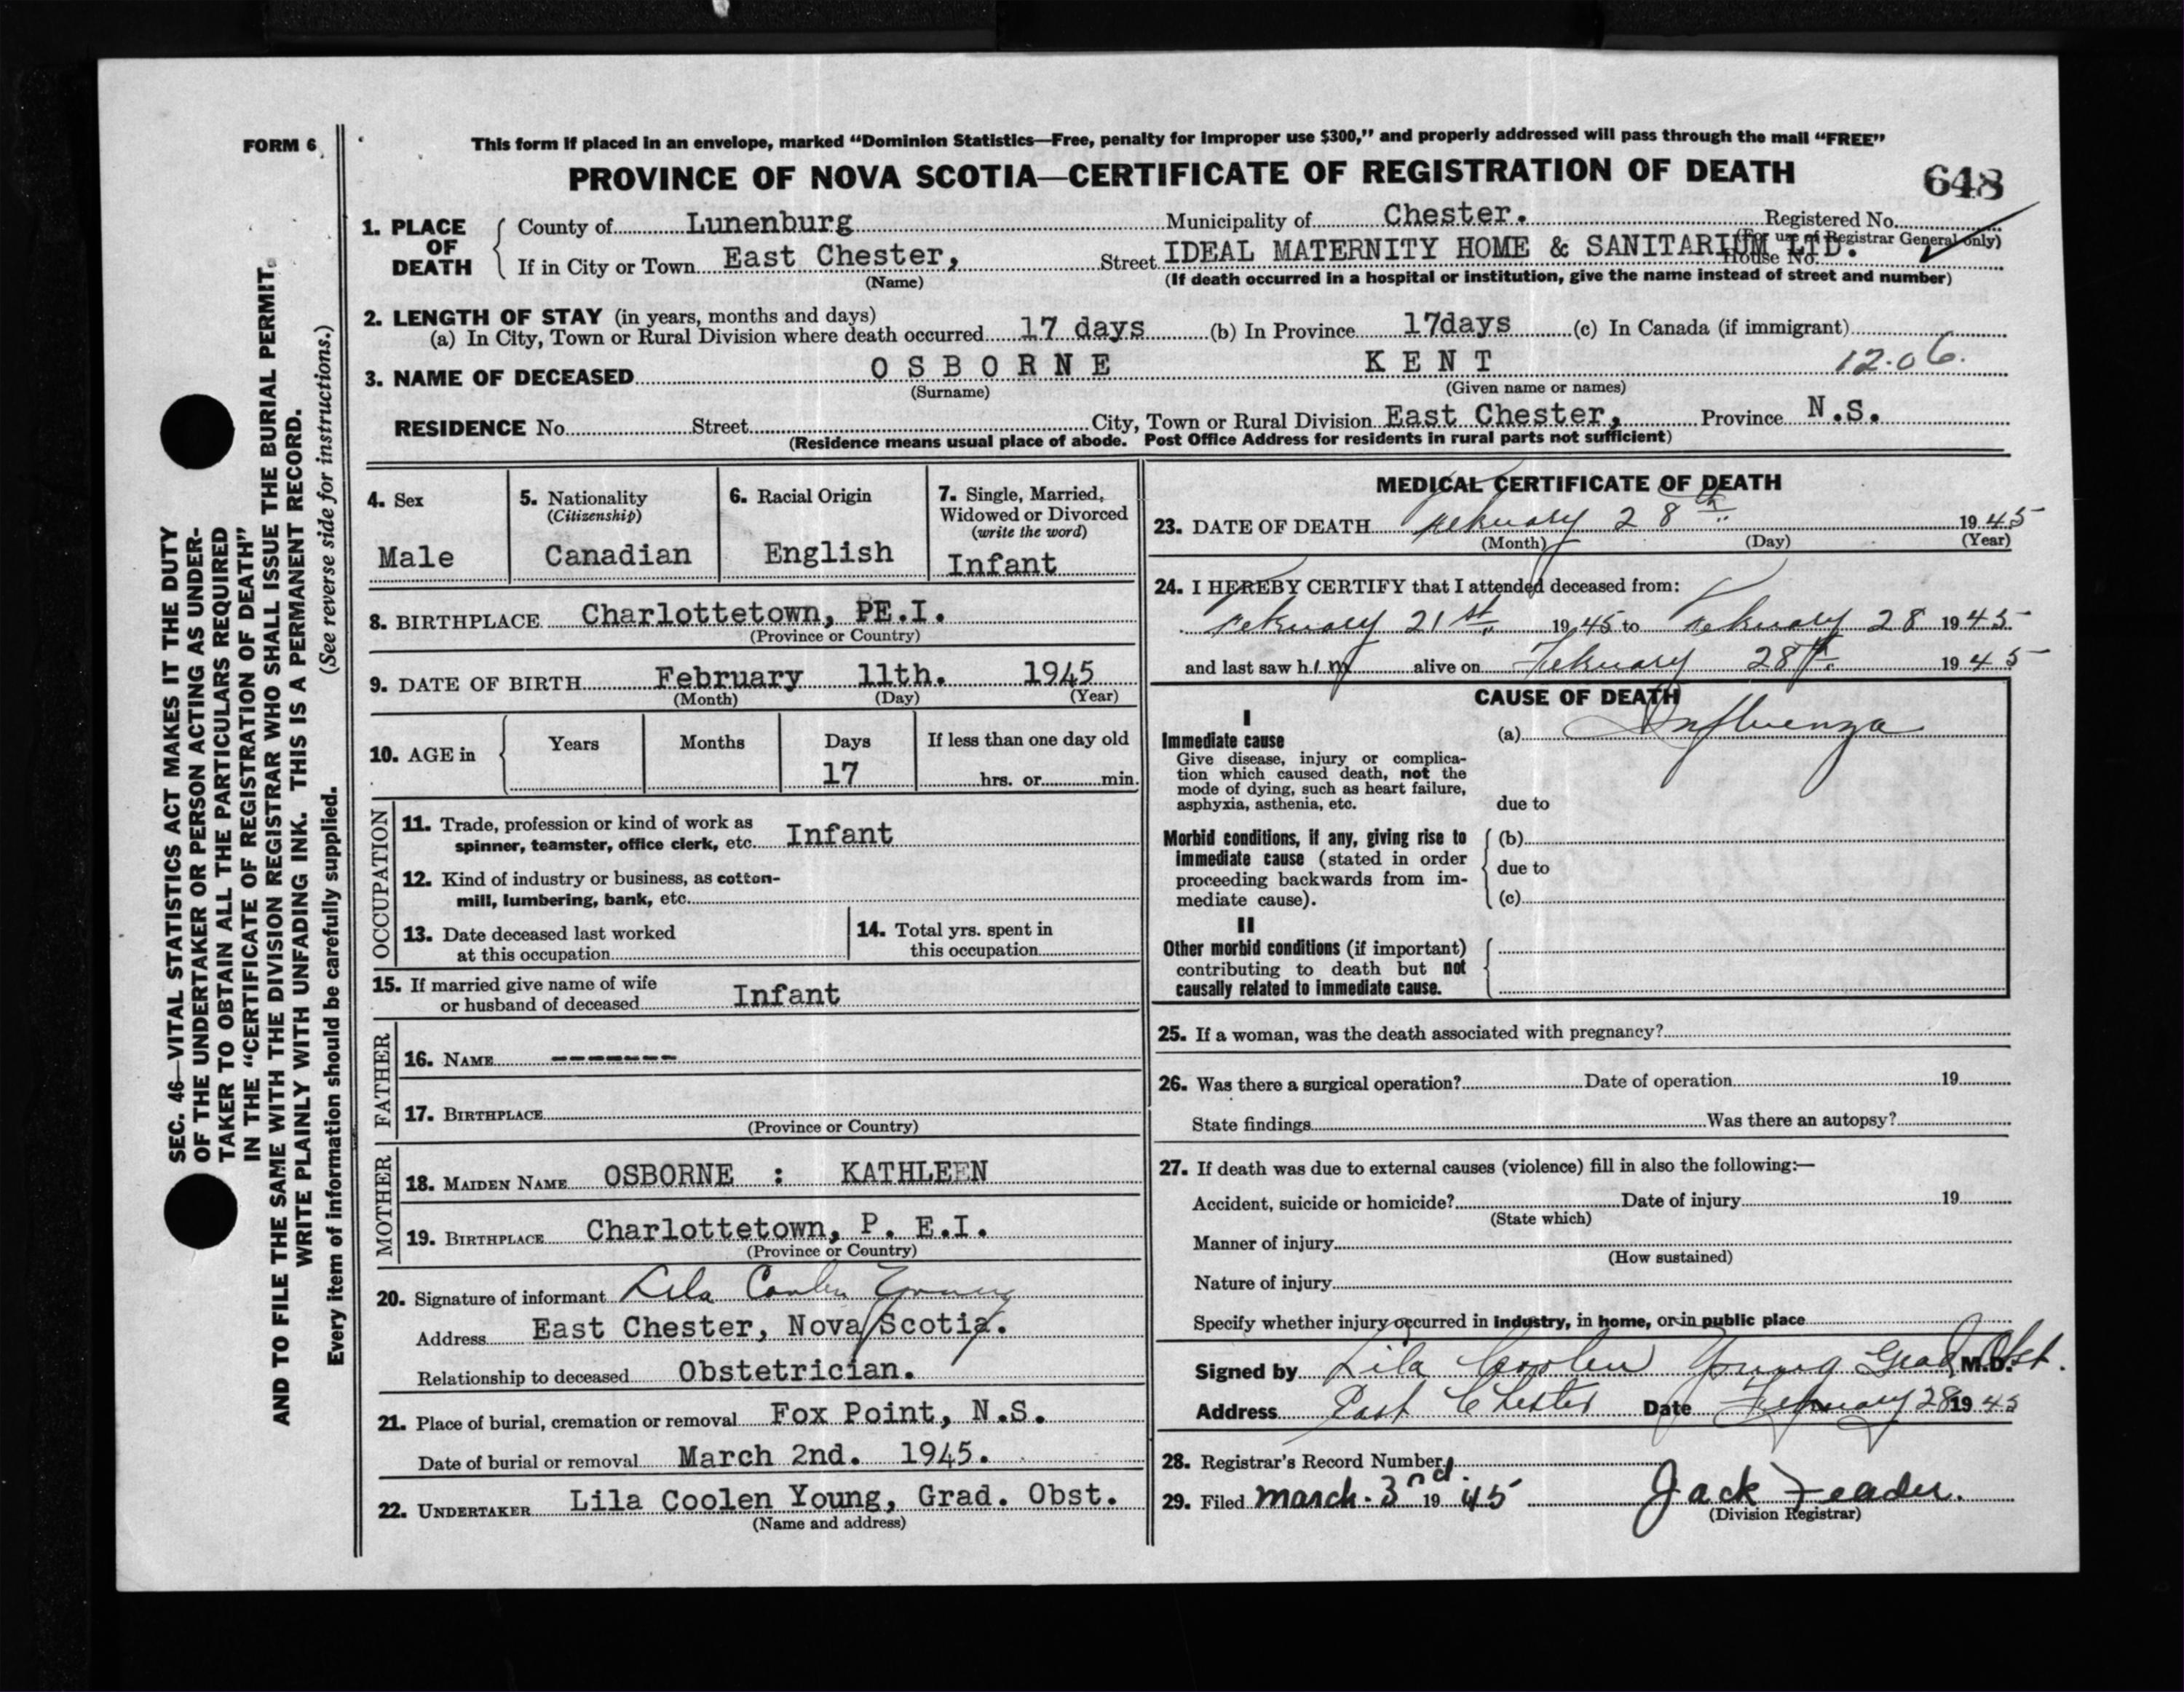 FORM 6
This form if placed in an envelope, marked “Dominion Statistics—Free, penalty for improper use $300,” and properly addressed will pass through the mail “FREE”
PROVINCE OF NOVA SCOTIA—CERTIFICATE OF REGISTRATION OF DEATH
648
1. PLACE OF DEATH
County of Lunenburg Municipality of Chester. Registered No.
(For use of Registrar General only)
If in City or Town East Chester, Street IDEAL MATERNITY HOME & SANITARIUM LTD. House No.
(Name) (If death occurred in a hospital or institution, give the name instead of street and number)
2. LENGTH OF STAY (in years, months and days)
(a) In City, Town or Rural Division where death occurred 17 days (b) In Province 17days (c) In Canada (if immigrant)
3. NAME OF DECEASED OSBORNE KENT 12.06.
(Surname) (Given name or names)
RESIDENCE No. Street City, Town or Rural Division East Chester, Province N.S.
(Residence means usual place of abode. Post Office Address for residents in rural parts not sufficient)
4. Sex
Male
5. Nationality
(Citizenship)
Canadian
6. Racial Origin
English
7. Single, Married,
Widowed or Divorced
(write the word)
Infant
8. BIRTHPLACE Charlottetown, PE.I.
(Province or Country)
9. DATE OF BIRTH February 11th. 1945
(Month) (Day) (Year)
10. AGE in Years Months Days If less than one day old
17 hrs. or min.
OCCUPATION
11. Trade, profession or kind of work as
spinner, teamster, office clerk, etc. Infant
12. Kind of industry or business, as cotton-
mill, lumbering, bank, etc.
13. Date deceased last worked
at this occupation
14. Total yrs. spent in
this occupation
15. If married give name of wife
or husband of deceased Infant
FATHER
16. NAME -------
17. BIRTHPLACE
(Province or Country)
MOTHER
18. MAIDEN NAME OSBORNE : KATHLEEN
19. BIRTHPLACE Charlottetown, P. E.I.
(Province or Country)
20. Signature of informant Lila Coolen Young
Address East Chester, Nova Scotia.
Relationship to deceased Obstetrician.
21. Place of burial, cremation or removal Fox Point, N.S.
Date of burial or removal March 2nd. 1945.
22. UNDERTAKER Lila Coolen Young, Grad. Obst.
(Name and address)
MEDICAL CERTIFICATE OF DEATH
23. DATE OF DEATH February 28th 1945
(Month) (Day) (Year)
24. I HEREBY CERTIFY that I attended deceased from:
February 21st 1945 to February 28 1945
and last saw him alive on February 28th 1945
CAUSE OF DEATH
I
Immediate cause
Give disease, injury or complica-
tion which caused death, not the
mode of dying, such as heart failure,
asphyxia, asthenia, etc.
(a) Influenza
due to
Morbid conditions, if any, giving rise to
immediate cause (stated in order
proceeding backwards from im-
mediate cause).
(b)
due to
(c)
II
Other morbid conditions (if important)
contributing to death but not
causally related to immediate cause.
25. If a woman, was the death associated with pregnancy?
26. Was there a surgical operation? Date of operation 19
State findings Was there an autopsy?
27. If death was due to external causes (violence) fill in also the following:—
Accident, suicide or homicide? Date of injury 19
(State which)
Manner of injury
(How sustained)
Nature of injury
Specify whether injury occurred in industry, in home, or in public place
Signed by Lila Coolen Young Grad. M.D. Obst.
Address East Chester Date February 28 1945
28. Registrar's Record Number
29. Filed March. 3nd. 1945 Jack Feader.
(Division Registrar)
SEC. 46—VITAL STATISTICS ACT MAKES IT THE DUTY
OF THE UNDERTAKER OR PERSON ACTING AS UNDER-
TAKER TO OBTAIN ALL THE PARTICULARS REQUIRED
IN THE “CERTIFICATE OF REGISTRATION OF DEATH”
AND TO FILE THE SAME WITH THE DIVISION REGISTRAR WHO SHALL ISSUE THE BURIAL PERMIT.
WRITE PLAINLY WITH UNFADING INK. THIS IS A PERMANENT RECORD.
Every item of information should be carefully supplied. (See reverse side for instructions.)